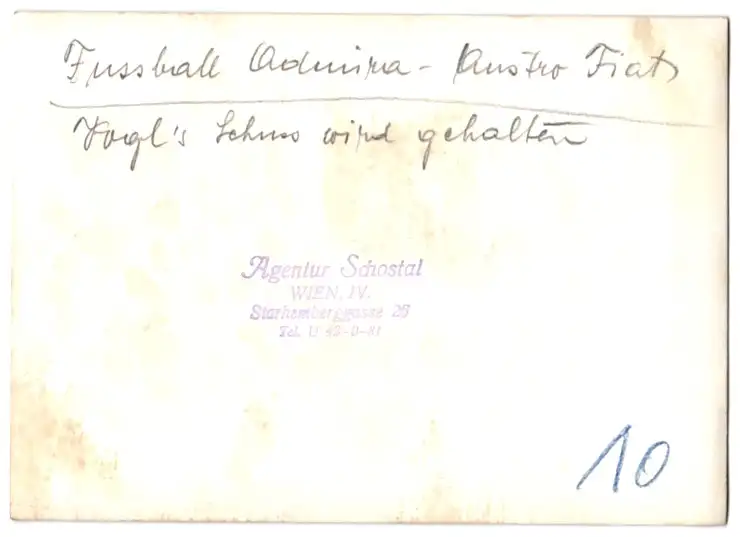 Fussball Admira - Austro Fiat
Vogl's Schuss wird gehalten
Agentur Schostal
WIEN, IV.
Starhemberggasse 26
Tel. U
10